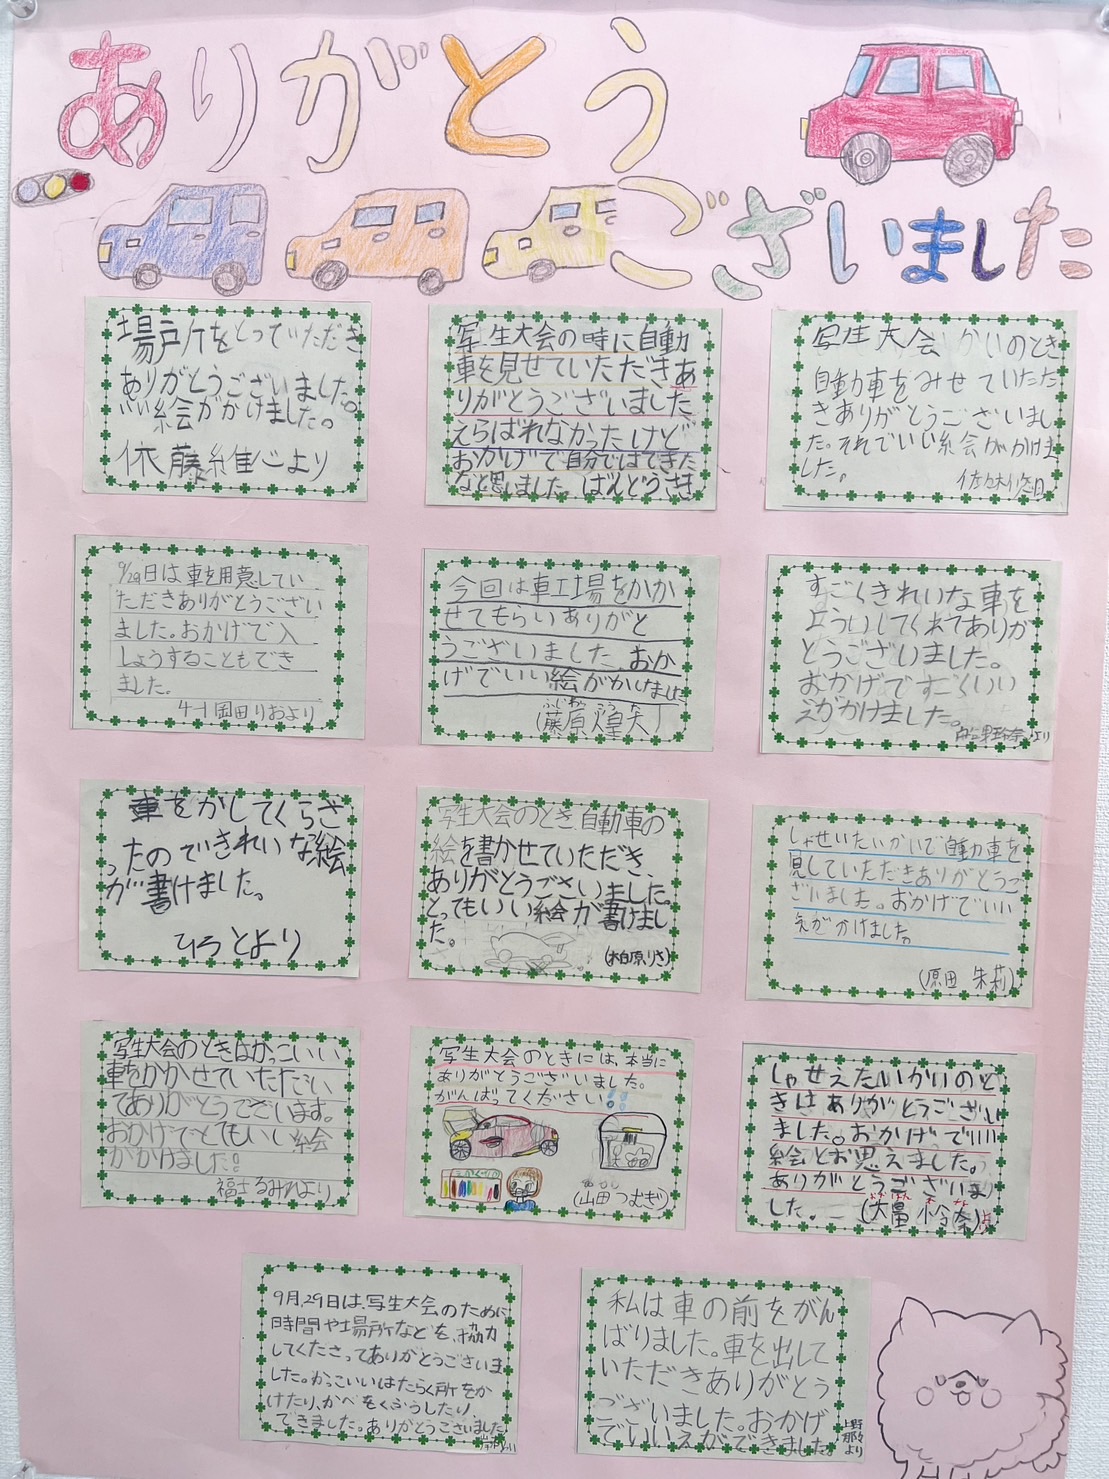 ありがとう
ございました
場所をとっていただき
ありがとうございました。
いい絵がかけました。
依藤維心より
写生大会の時に自動
車を見せていただきあ
りがとうございました
えらばれなかったけど
おかげで自分ではできた
なと思いました。ばんどうさき
写生大会かいのとき
自動車をみせていただ
きありがとうございまし
た。それでいい絵会がかけま
した。
佐々木
9/29日は車を用意してい
ただきありがとうござい
ました。おかげで入
しょうすることもでき
ました。
4-1岡田りおより
今回は車工場をかか
せてもらいありがと
うございました。おか
げでいい絵がかけました
ふじわら こうた
(藤原煌太)
すごくきれいな車を
よういしてくれてありが
とうございました。
おかげですごくいい
えがかけました。
より
車をかしてくらさ
ったのできれいな絵
が書けました。
ひろとより
写生大会のとき、自動車の
絵を書かせていただき、
ありがとうございました。
とってもいい絵が書けまし
た。
(水白原りさ)
しゃせいたいかいで自動車を
見していただきありがとうご
ざいました。おかげでいい
えがかけました。
(原田 朱莉)
写生大会のときはかっこいい
車をかかせていただい
てありがとうございます。
おかげでとてもいい絵
がかけました!
福士るみれより
写生大会のときには、本当に
ありがとうございました。
がんばってください。!!
(山田つむぎ)
しゃせえたいかいのと
きはありがとうござい
ました。おかげでいい
絵とお思えました。
ありがとうございま
した。
9月、29日は、写生大会のために
時間や場所などを、協力
してくださってありがとうございま
した。かっこいいはたらく所をか
けたり、かべをくふうしたり、
できました。ありがとうございました
私は車の前をがん
ばりました。車を出して
いただきありがとう
ございました。おかげ
でいいえができました。
上野
那々
より